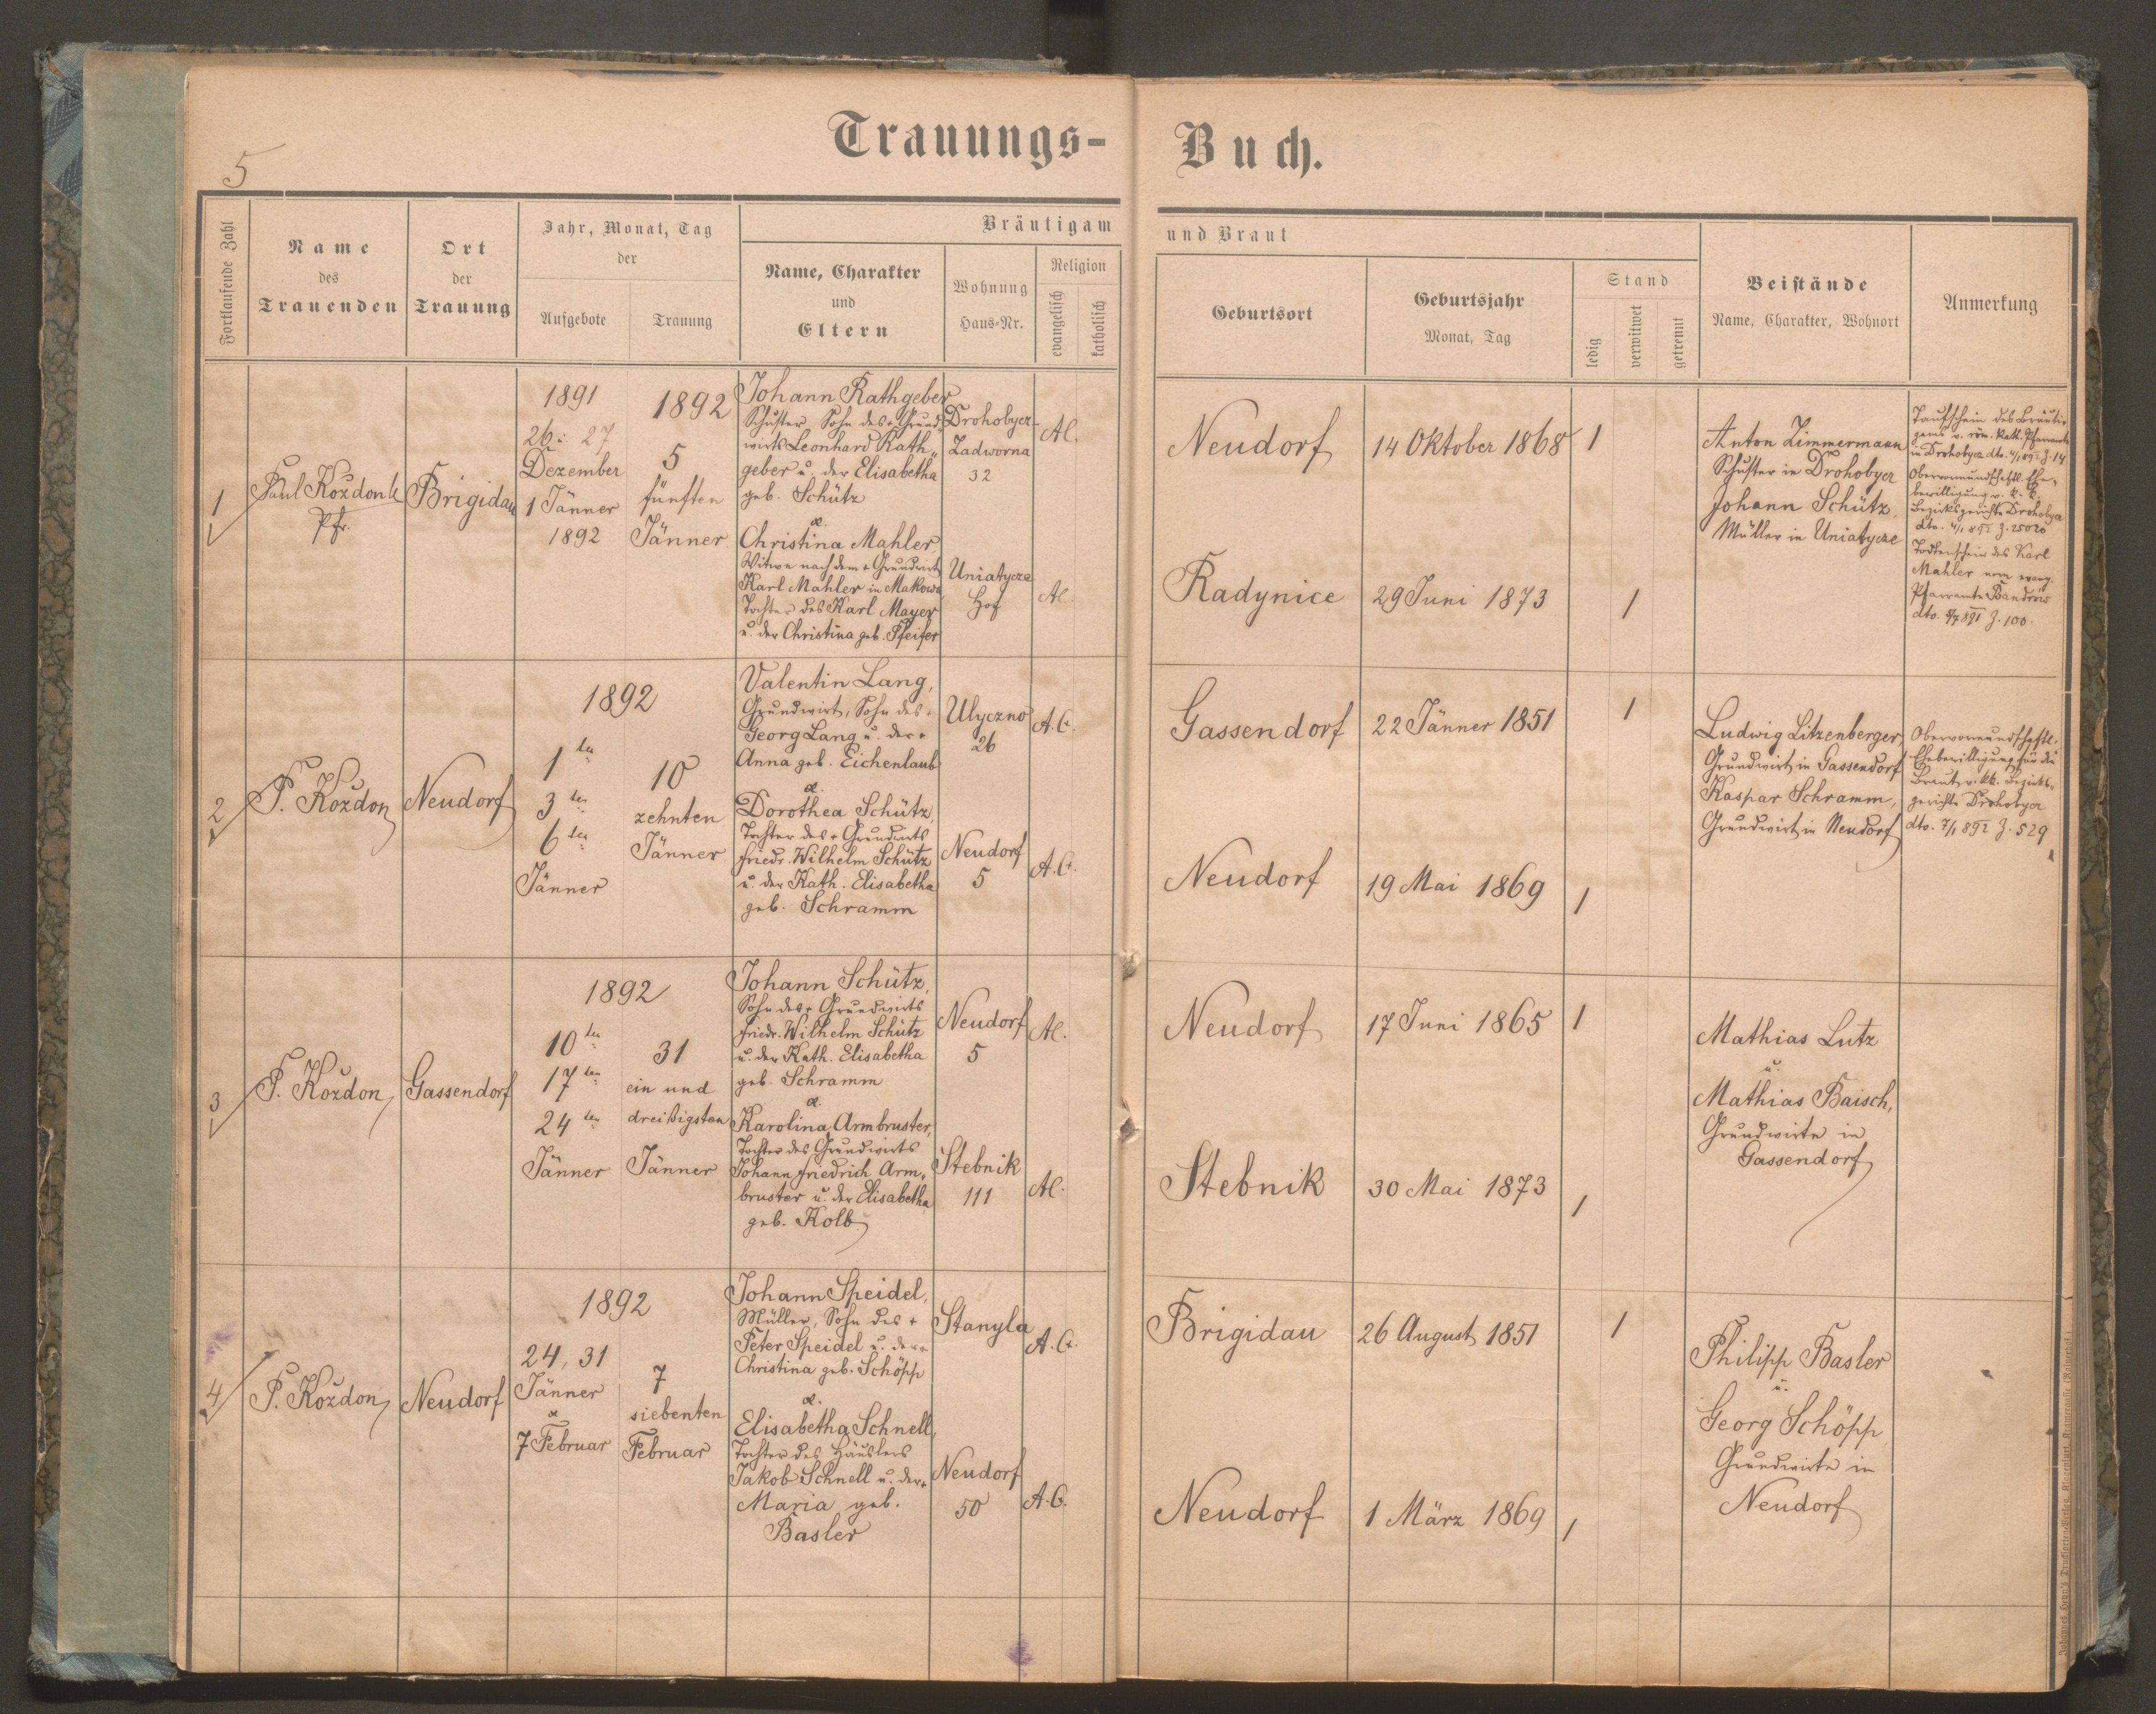 Trauungs-
Buch.
5
Fortlaufende Zahl
Name
des
Trauenden
Ort
der
Trauung
Jahr, Monat, Tag
der
Aufgebote
Trauung
Bräutigam
Name, Charakter
und
Eltern
Wohnung
Haus-Nr.
Religion
evangelisch
katholisch
und Braut
Geburtsort
Geburtsjahr
Monat, Tag
Stand
ledig
verwitwet
getrennt
Beistände
Name, Charakter, Wohnort
Anmerkung
1
Paul Kożdon
Pfr.
Brigidau
1891
26. 27
Dezember
1 Jänner
1892
1892
5
fünften
Jänner
Johann Rathgeber
Schuster, Sohn des + Grund-
wirts Leonhard Rath„
geber u. der Elisabetha
geb. Schütz
&.
Christina Mahler,
Witwe nach dem + Grundwirt
Karl Mahler in Makowa
Tochter des Karl Mayer
u. der Christina geb. Pfeifer
Drohobycz-
Zadworna
32
Uniatycze
Hof
A.C.
A.C.
Neudorf
14 Oktober 1868
1
Radynice
29 Juni 1873
1
Anton Zimmermann
Schuster in Drohobycz
Johann Schütz,
Müller in Uniatycze
Taufschein des Bräuti-
gams v. röm. kath. Pfarramte
in Drohobycz dto. 4/1 892 Z. 14
Obervormundschaftl. Ehe„
bewilligung v. k. k.
Bezirksgerichte Drohobycz
dto. 4/1 892 Z. 25020
Todtenschein des Karl
Mahler vom evang.
Pfarramte Bandrow
dto. 891 Z. 100.
2
P. Kożdon
Neudorf
1892
1ten
3ten
6ten
Jänner
10
zehnten
Jänner
Valentin Lang,
Grundwirt, Sohn des +
Georg Lang u. der +
Anna geb. Eichenlaub
&.
Dorothea Schütz,
Tochter des + Grundwirts
Friedr. Wilhelm Schütz
u. der Kath. Elisabetha
geb. Schramm
Ulyczno
26
Neudorf
5
A.C.
A.C.
Gassendorf
22 Jänner 1851
1
Neudorf
19 Mai 1869
1
Ludwig Litzenberger,
Grundwirt in Gassendorf
Kaspar Schramm,
Grundwirt in Neudorf
Obervormundschaftl.
Ehebewilligung für die
Braut v. kk. Bezirks-
gerichte Drohobycz
dto. 7/1 892 Z. 529
3
P. Kożdon
Gassendorf
1892
10ten
17ten
24ten
Jänner
31
ein und
dreißigsten
Jänner
Johann Schütz,
Sohn des + Grundwirts
Friedr. Wilhelm Schütz
u. der Kath. Elisabetha
geb. Schramm
&.
Karolina Armbruster,
Tochter des Grundwirts
Johann Friedrich Arm„
bruster u. der Elisabetha
geb. Kolb
Neudorf
5
Stebnik
111
A.C.
A.C.
Neudorf
17 Juni 1865
1
Stebnik
30 Mai 1873
1
Mathias Lutz
u.
Mathias Baisch,
Grundwirte in
Gassendorf
4
P. Kożdon
Neudorf
1892
24, 31
Jänner
&
7 Februar
7
siebenten
Februar
Johann Speidel,
Müller, Sohn des +
Peter Speidel u. der +
Christina geb. Schöpp
&.
Elisabetha Schnell,
Tochter des Häuslers
Jakob Schnell u. der +
Maria geb.
Basler
Stanyla
Neudorf
50
A.C.
A.C.
Brigidau
26 August 1851
1
Neudorf
1 März 1869
1
Philipp Basler
u.
Georg Schöpp
Grundwirte in
Neudorf